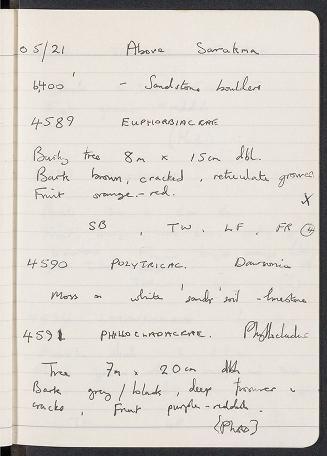 05/21 Above Sarakma
6,400' - Sandstone boulders
4589 EUPHORBIACEAE
Bushy tree 8m x 15cm dbh.
Bark brown, cracked, reticulate grooves
Fruit orange-red. X
SB, TW. LF. FR ④
4590 POLYTRICAC. Dawsonia
Moss on white 'sandy' soil - limestone
4591 PHYLLOCLADACEAE. Phyllocladus
Tree 7m x 20cm dbh
Bark grey/black, deep &
cracks, Fruit purple-reddish.